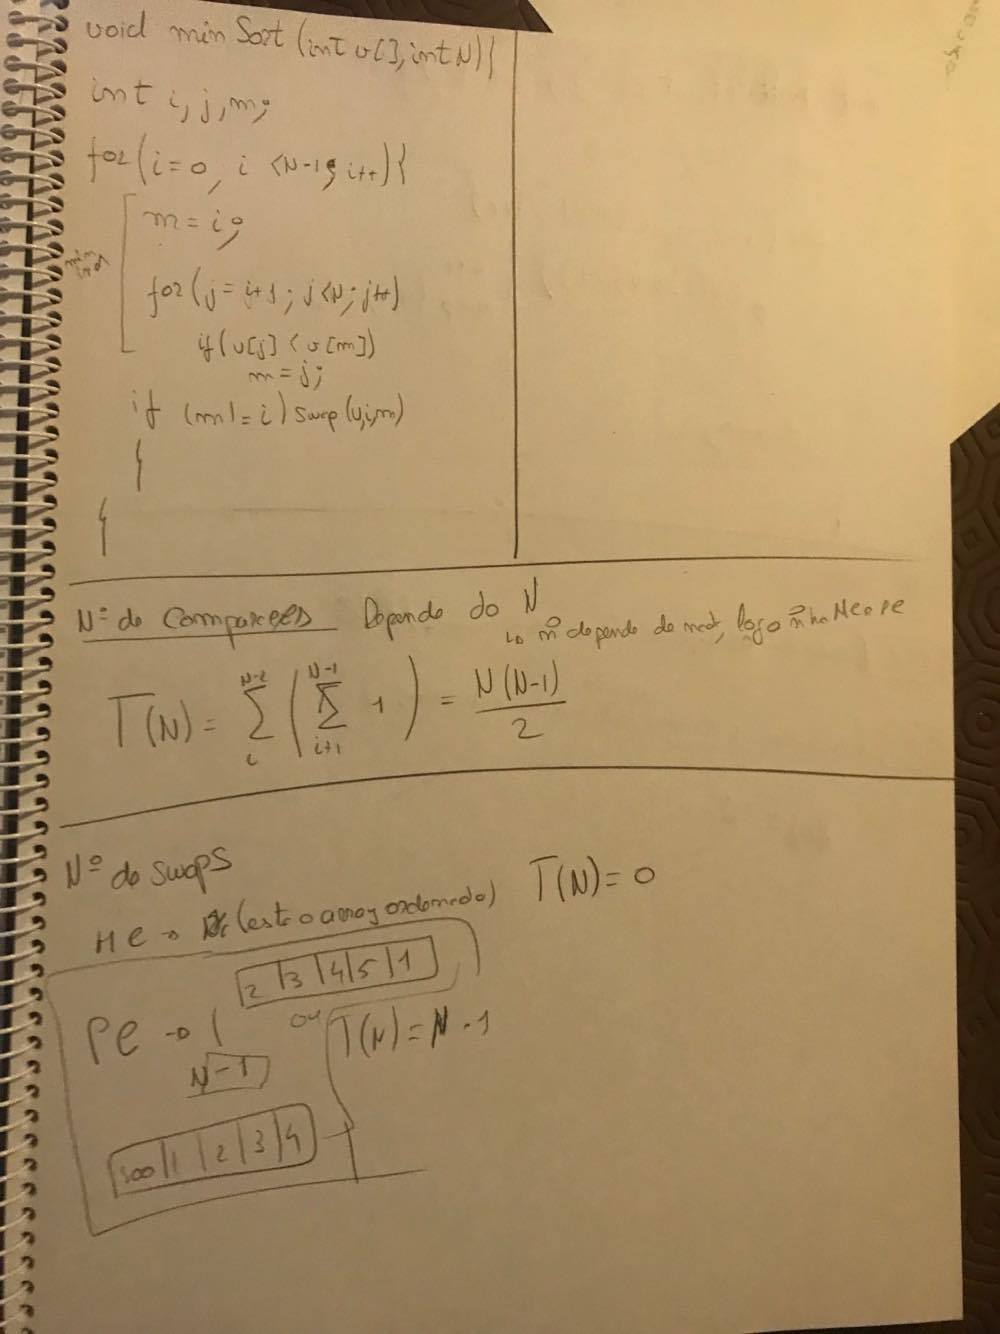 void minSort (int v[], int N){
int i, j, m;
for (i=0, i <N-1; i++){
min ind
m = i;
for (j = i+1; j<N; j++)
if (v[j] < v[m])
m = j;
if (m!=i) swap (v,i,m)
}
}
Nº de comparações Depende do N
ñ depende de mad, logo ñ ha MC e PC
T(N) = N-2 Σ i ( N-1 Σ i+1 1 ) = N(N-1) / 2
Nº de swaps
MC → (este o array ordenado) T(N) = 0
2 | 3 | 4 | 5 | 1
PC → ( ou T(N) = N-1
N-1
100 | 1 | 2 | 3 | 4